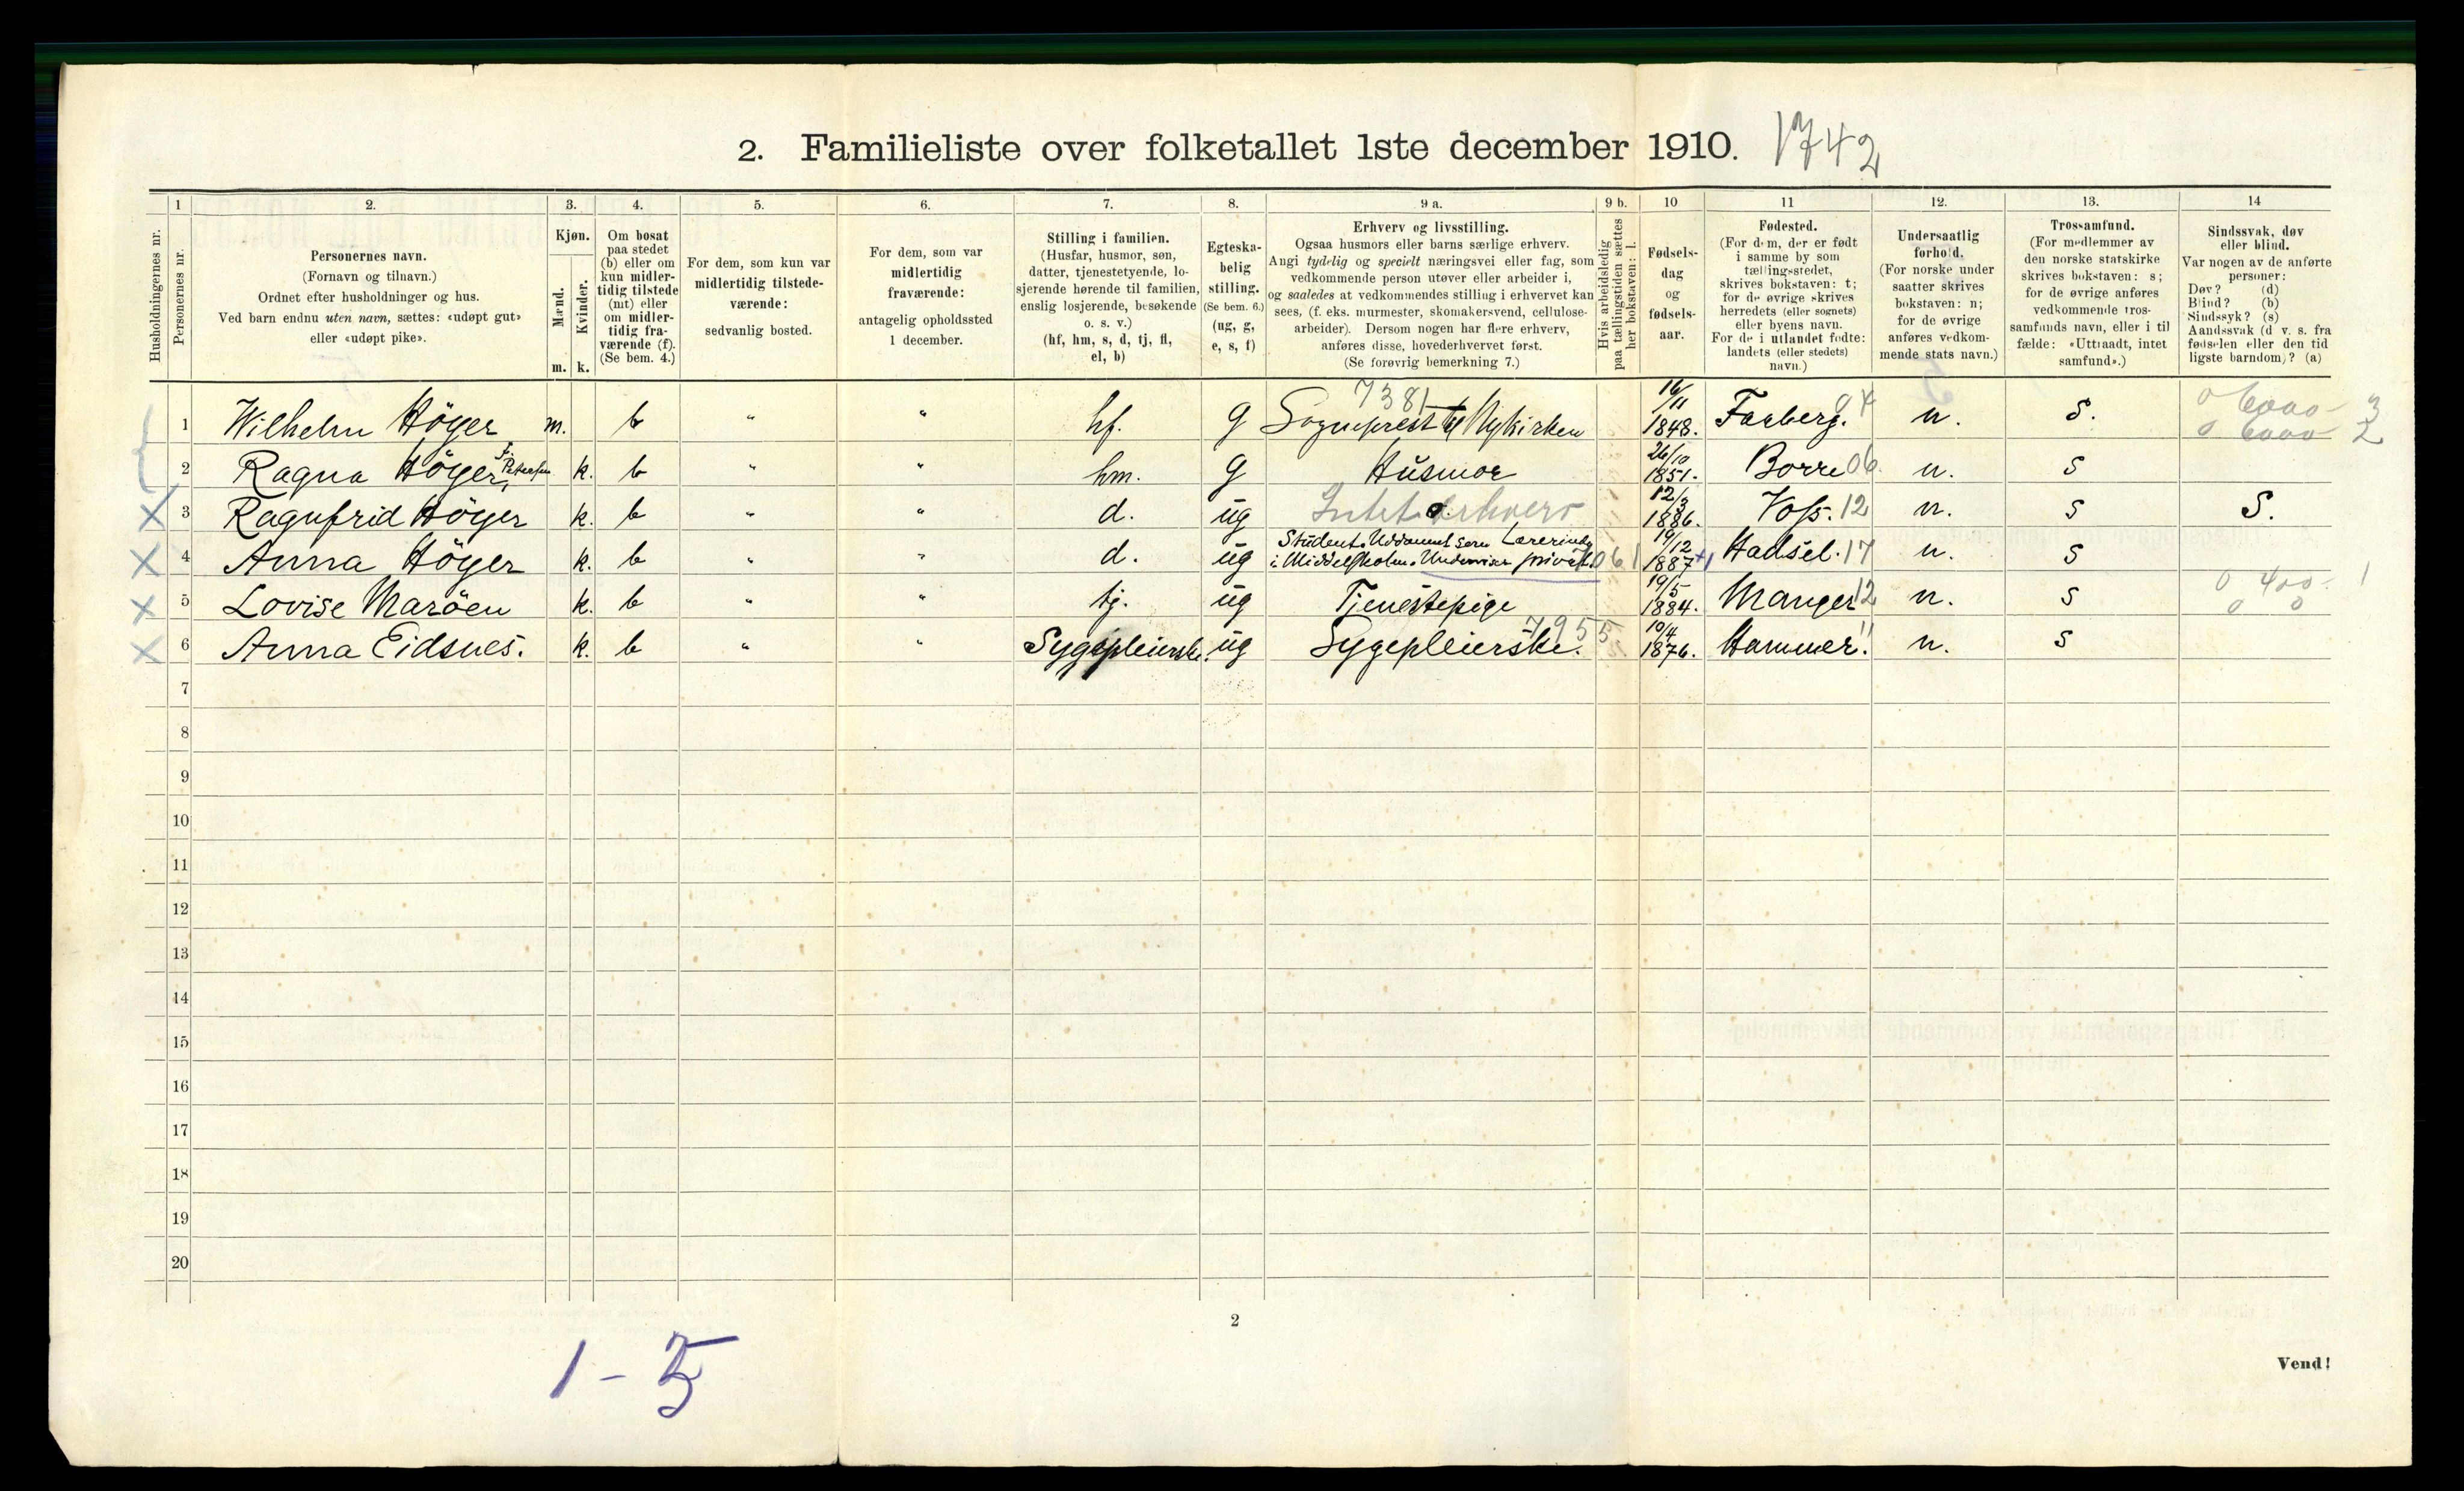 2. Familieliste over folketallet 1ste december 1910. 1742
Husholdningernes nr.
1
Personernes nr.
2.
Personernes navn.
(Fornavn og tilnavn.)
Ordnet efter husholdninger og hus.
Ved barn endnu uten navn, sættes: «udøpt gut»
eller «udøpt pike».
3.
Kjøn.
Mænd.
Kvinder.
m. k.
4.
Om bosat
paa stedet
(b) eller om
kun midler-
tidig tilstede
(mt) eller
om midler-
tidig fra-
værende (f).
(Se bem. 4.)
5.
For dem, som kun var
midlertidig tilstede-
værende:
sedvanlig bosted.
6.
For dem, som var
midlertidig
fraværende:
antagelig opholdssted
1 december.
7.
Stilling i familien.
(Husfar, husmor, søn,
datter, tjenestetyende, lo-
sjerende hørende til familien,
enslig losjerende, besøkende
o. s. v.)
(hf, hm, s, d, tj, fl,
el, b)
8.
Egteska-
belig
stilling.
(Se bem. 6.)
(ug, g,
e, s, f)
9 a.
Erhverv og livsstilling.
Ogsaa husmors eller barns særlige erhverv.
Angi tydelig og specielt næringsvei eller fag, som
vedkommende person utøver eller arbeider i,
og saaledes at vedkommendes stilling i erhvervet kan
sees, (f. eks. murmester, skomakersvend, cellulose-
arbeider). Dersom nogen har flere erhverv,
anføres disse, hovederhvervet først.
(Se forøvrig bemerkning 7.)
9 b.
Hvis arbeidsledig
paa tællingstiden sættes
her bokstaven: l.
10
Fødsels-
dag
og
fødsels-
aar.
11
Fødested.
(For dem, der er født
i samme by som
tællingsstedet,
skrives bokstaven: t;
for de øvrige skrives
herredets (eller sognets)
eller byens navn.
For de i utlandet fødte:
landets (eller stedets)
navn.)
12.
Undersaatlig
forhold.
(For norske under
saatter skrives
bokstaven: n;
for de øvrige
anføres vedkom-
mende stats navn.)
13.
Trossamfund.
(For medlemmer av
den norske statskirke
skrives bokstaven: s;
for de øvrige anføres
vedkommende tros-
samfunds navn, eller i til
fælde: «Uttraadt, intet
samfund».)
14
Sindssvak, døv
eller blind.
Var nogen av de anførte
personer:
Døv? (d)
Blind? (b)
Sindssyk? (s)
Aandssvak (d v. s. fra
fødselen eller den tid
ligste barndom)? (a)
1 Wilhelm Höyer m. b " " hf. g 7381 Sogneprest til Nykirken 16/11 1848. Faaberg. 04 n. s. 0 6000 - 3
0 6000 - 2
2 Ragna Höyer, f. Petersen k. b " " hm. g Husmor 26/10 1851. Borre 06. n. s
X 3 Ragnfrid Höyer k. b " " d. ug Intet erhverv 12/3 1886. Voss. 12 n. s S.
X 4 Anna Höyer k. b " " d. ug Student. Uddannet som Lærerinde
i Middelskolen. Underviser privat. 061 19/12 1887 +1 Hadsel. 17 n. s
X 5 Lovise Maröen k. b " " tj. ug Tjenestepige 19/5 1884. Manger 12 n. s 0 400 - 1
0 0
X 6 Anna Eidsnes. k. b " " Sygepleierske. ug Sygepleierske. 7955 10/4 1876. Hammer. 11 n. s
7
8
9
10
11
12
13
14
15
16
17
18
19
20
2
1 - 5
Vend!